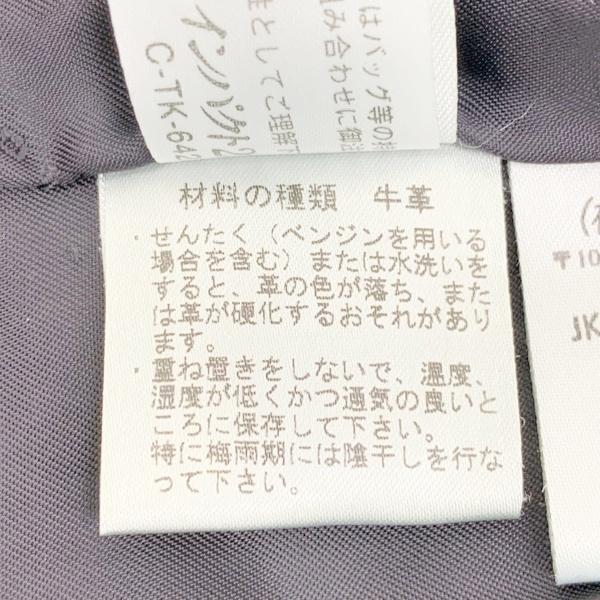 はバッグ等の
組み合わせに御
性としてご理解
インパクト2
C-TK-642
材料の種類 牛革
・せんたく（ベンジンを用いる
場合を含む）または水洗いを
すると、革の色が落ち、また
は革が硬化するおそれがあり
ます。
・重ね置きをしないで、温度、
湿度が低くかつ通気の良いと
ころに保存して下さい。
特に梅雨期には陰干しを行な
って下さい。
〒10
JK